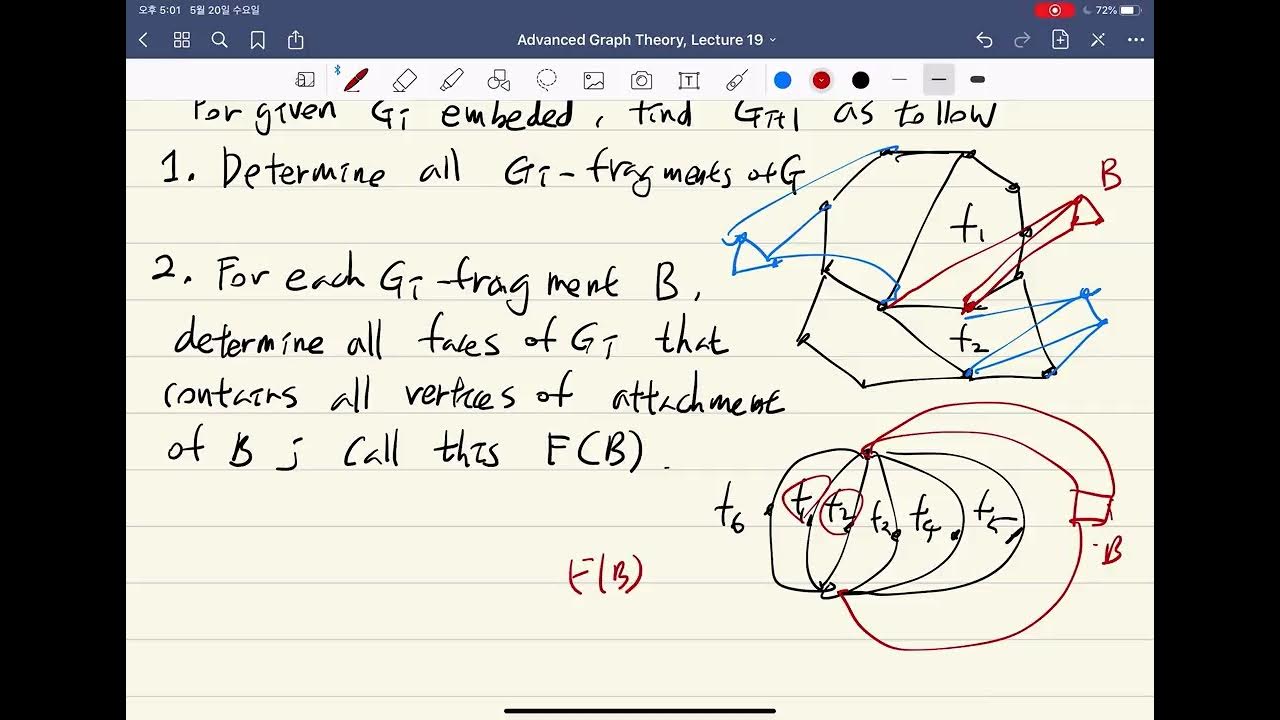 오후 5:01 5월 20일 수요일
72%
Advanced Graph Theory, Lecture 19
For given Gi embeded, find Gi+1 as follow
1. Determine all Gi-fragments of G
2. For each Gi-fragment B,
determine all faces of Gi that
contains all vertices of attachment
of B ; call this F(B).
F(B)
B
f1
f2
f6 f1 f2 f3 f4 f5
B